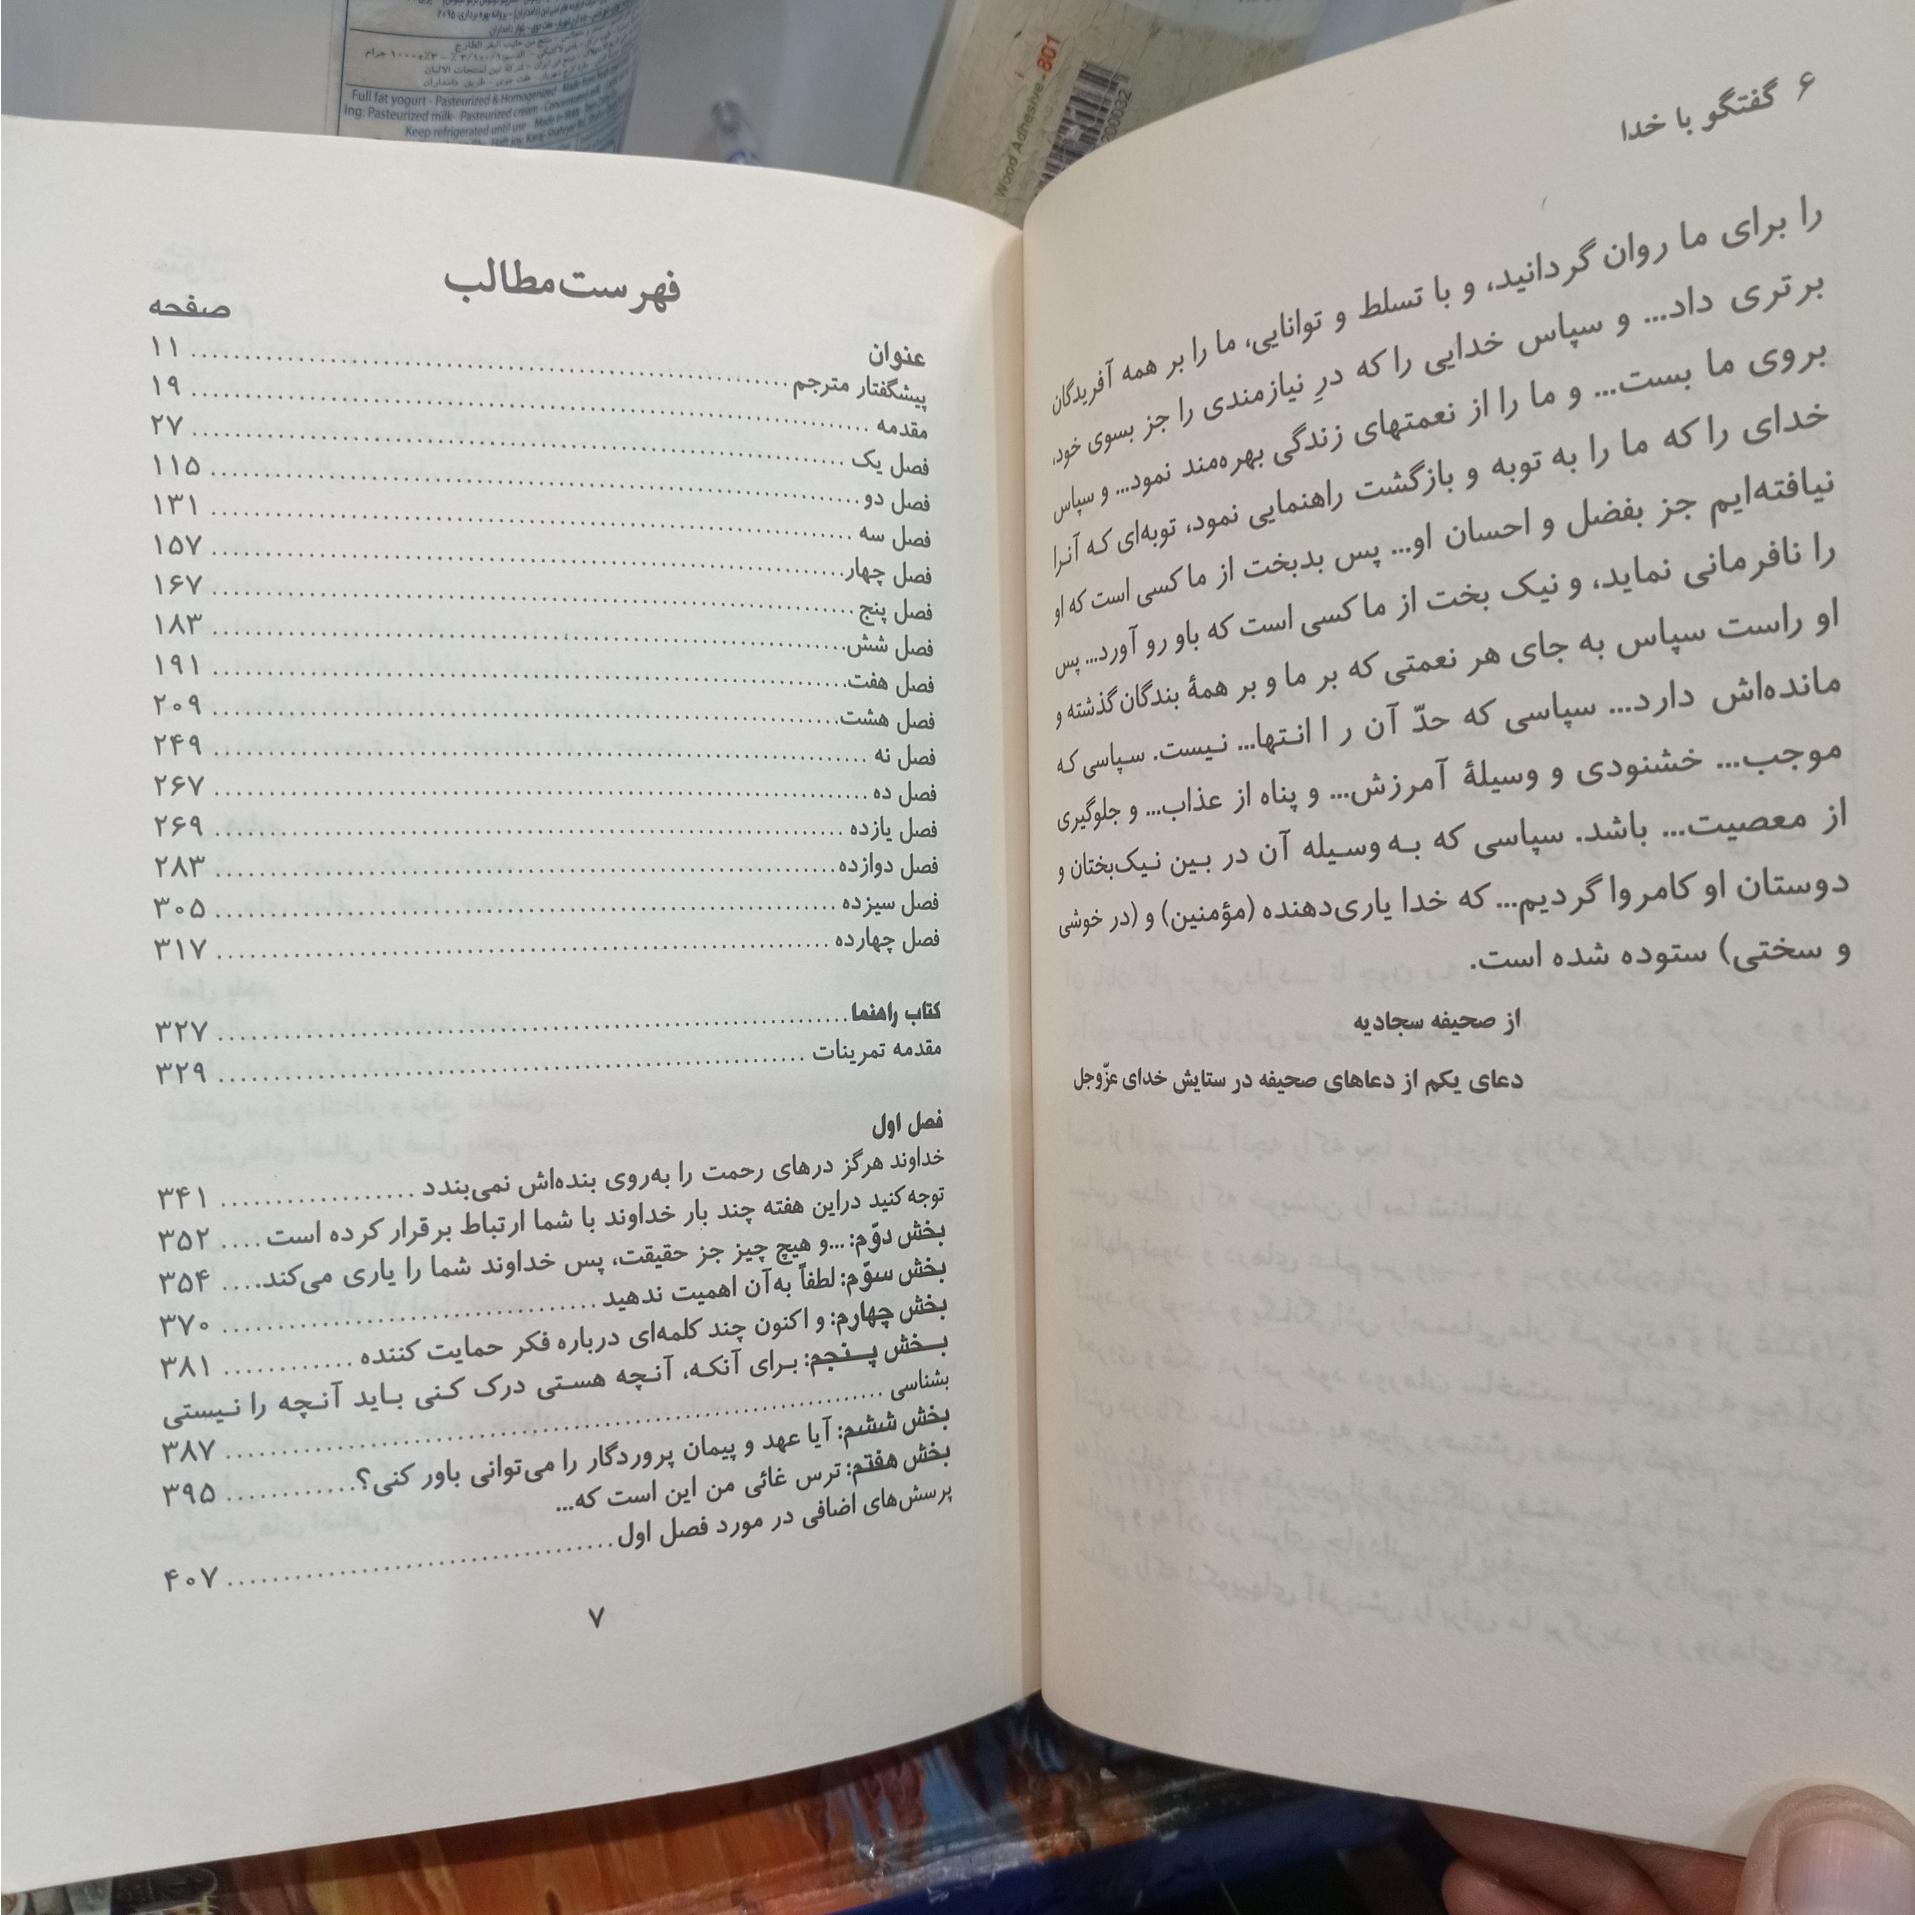 ۶ گفتگو با خدا
را برای ما روان گردانید، و با تسلط و توانایی، ما را بر همه آفریدگان
برتری داد... و سپاس خدایی را که درِ نیازمندی را جز بسوی خود،
بروی ما بست... و ما را از نعمتهای زندگی بهره‌مند نمود... و سپاس
خدای را که ما را به توبه و بازگشت راهنمایی نمود، توبه‌ای که آنرا
نیافته‌ایم جز بفضل و احسان او... پس بدبخت از ما کسی است که او
را نافرمانی نماید، و نیک بخت از ما کسی است که باو رو آورد... پس
او راست سپاس به جای هر نعمتی که بر ما و بر همهٔ بندگان گذشته و
مانده‌اش دارد... سپاسی که حدّ آن ر ا انتها... نیست. سپاسی که
موجب... خشنودی و وسیلهٔ آمرزش... و پناه از عذاب... و جلوگیری
از معصیت... باشد. سپاسی که به وسیله آن در بین نیک‌بختان و
دوستان او کامروا گردیم... که خدا یاری‌دهنده (مؤمنین) و (در خوشی
و سختی) ستوده شده است.
از صحیفه سجادیه
دعای یکم از دعاهای صحیفه در ستایش خدای عزّوجل
فهرست مطالب
عنوان صفحه
پیشگفتار مترجم ........ ۱۱
مقدمه ........ ۱۹
فصل یک ........ ۲۷
فصل دو ........ ۱۱۵
فصل سه ........ ۱۳۱
فصل چهار ........ ۱۵۷
فصل پنج ........ ۱۶۷
فصل شش ........ ۱۸۳
فصل هفت ........ ۱۹۱
فصل هشت ........ ۲۰۹
فصل نه ........ ۲۴۹
فصل ده ........ ۲۶۷
فصل یازده ........ ۲۶۹
فصل دوازده ........ ۲۸۳
فصل سیزده ........ ۳۰۵
فصل چهارده ........ ۳۱۷
کتاب راهنما ........ ۳۲۷
مقدمه تمرینات ........ ۳۲۹
فصل اول
خداوند هرگز درهای رحمت را به‌روی بنده‌اش نمی‌بندد ........ ۳۴۱
توجه کنید دراین هفته چند بار خداوند با شما ارتباط برقرار کرده است .... ۳۵۲
بخش دوّم: ...و هیچ چیز جز حقیقت، پس خداوند شما را یاری می‌کند.... ۳۵۴
بخش سوّم: لطفاً به‌آن اهمیت ندهید ........ ۳۷۰
بخش چهارم: و اکنون چند کلمه‌ای درباره فکر حمایت کننده ........ ۳۸۱
بخش پنجم: برای آنکه، آنچه هستی درک کنی باید آنچه را نیستی
بشناسی ........ ۳۸۷
بخش ششم: آیا عهد و پیمان پروردگار را می‌توانی باور کنی؟ ........ ۳۹۵
بخش هفتم: ترس غائی من این است که...
پرسش‌های اضافی در مورد فصل اول ........ ۴۰۷
۷
Full fat yogurt - Pasteurized & Homogenized
Ing: Pasteurized milk- Pasteurized cream - Concentrated milk
Keep refrigerated until use
Wood Adhesive - 801
200032